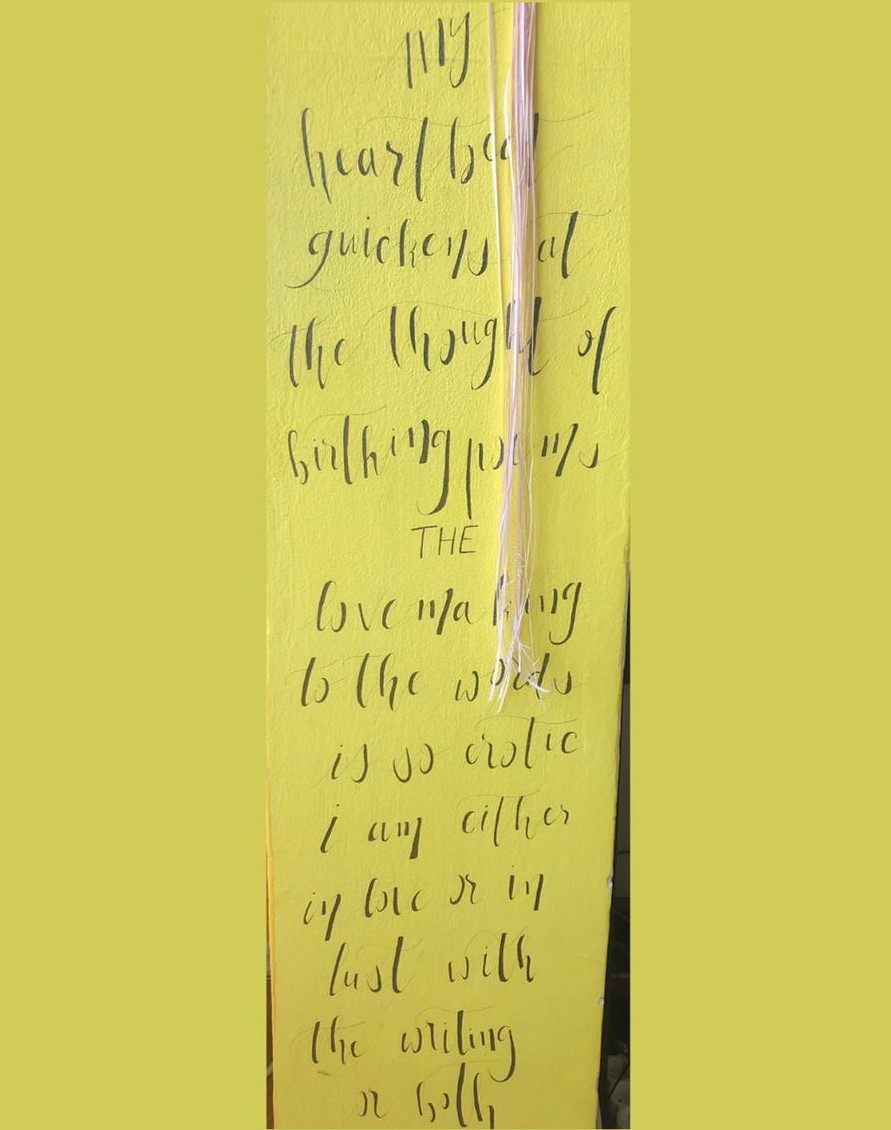 my
heart beat
quickens at
the thought of
birthing poems
THE
love making
to the words
is so erotic
i am either
in love or in
lust with
the writing
or both